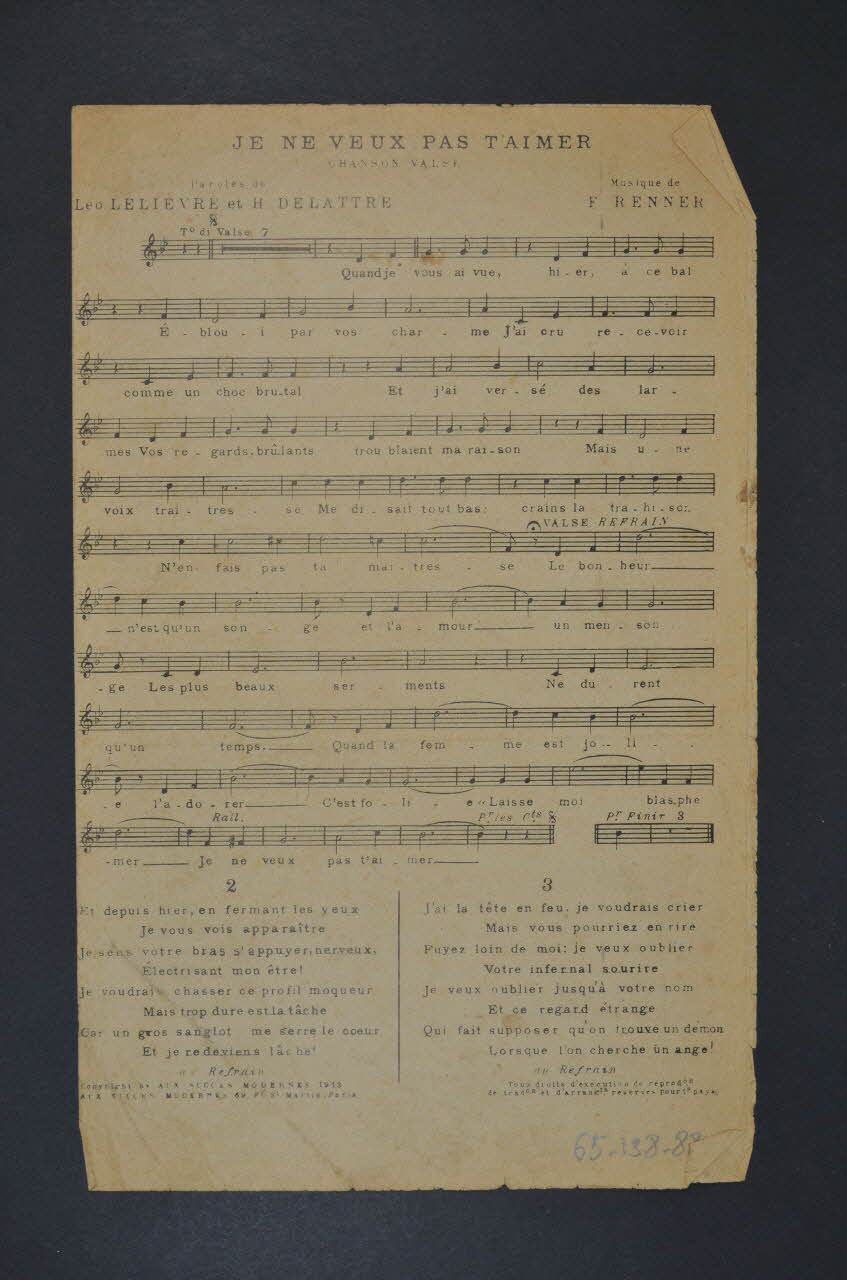 JE NE VEUX PAS T'AIMER
CHANSON VALSE
Paroles de
Léo LELIEVRE et H DELATTRE
Musique de
F. RENNER
To di Valse 7
Quand je vous ai vue, hi-er, à ce bal
É - blou - i par vos char - me J'ai cru re - ce-voir
comme un choc bru-tal Et j'ai ver - sé des lar -
mes Vos re - gards, brûlants trou blaient ma rai-son Mais u - ne
voix traî - tres - se Me di - sait tout bas: crains la tra - hi - son
VALSE REFRAIN
N'en fais pas ta maî - tres - se Le bon - heur
n'est qu'un son - ge et l'a - mour un men - son
-ge Les plus beaux ser - ments Ne du - rent
qu'un temps. Quand la fem - me est jo - li -
-e l'a - do - rer C'est fo - li - e « Laisse moi blas.phe
Rall. Pr les Cts Pr Finir 3
-mer Je ne veux pas t'ai - mer
2
Et depuis hier, en fermant les yeux
Je vous vois apparaître
Je sens votre bras s'appuyer, nerveux,
Électrisant mon être!
Je voudrais chasser ce profil moqueur
Mais trop dure est la tâche
Car un gros sanglot me serre le coeur
Et je redeviens lâche!
au Refrain
Copyright by AUX SUCCES MODERNES 1913
AUX SUCCES MODERNES 69 Fg St Martin, Paris
3
J'ai la tête en feu, je voudrais crier
Mais vous pourriez en rire
Fuyez loin de moi: je veux oublier
Votre infernal sourire
Je veux oublier jusqu'à votre nom
Et ce regard étrange
Qui fait supposer qu'on trouve un démon
Lorsque l'on cherche un ange!
au Refrain
Tous droits d'execution de reprodon
de tradon et d'arrangts reservés pour ts pays
65-138-82